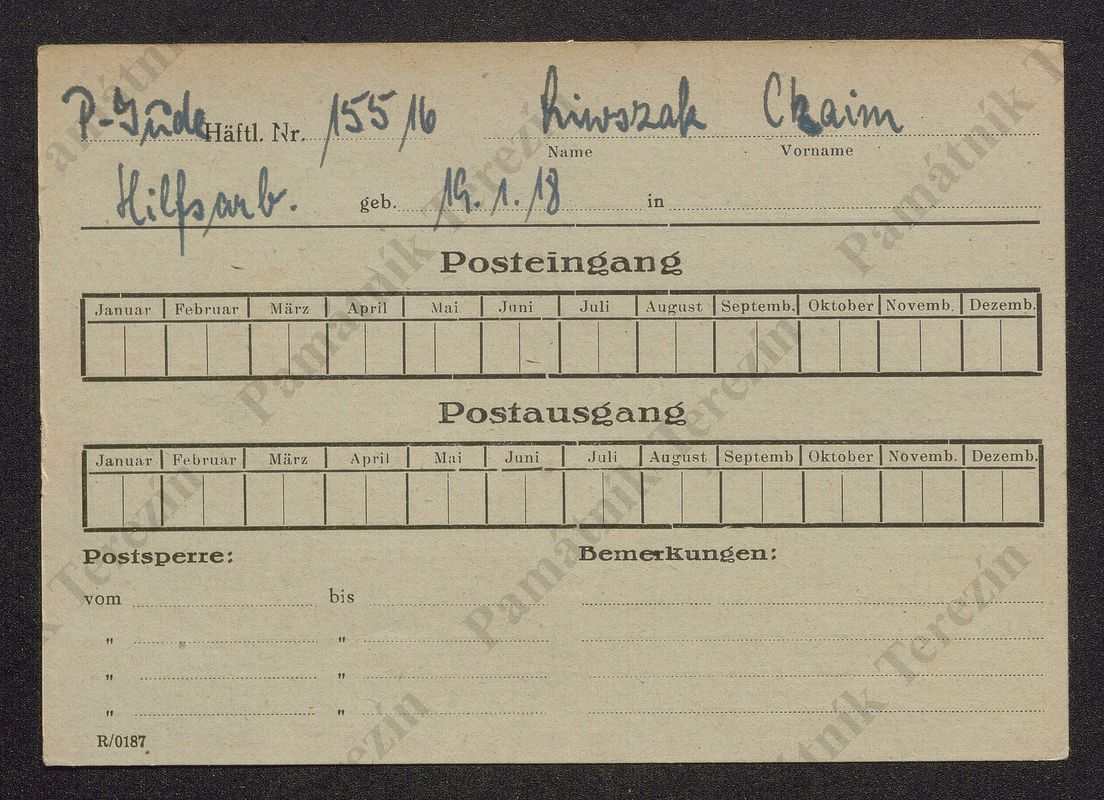 P-Jude Häftl. Nr. 15516 Liwszak Chaim
Name Vorname
Hilfsarb. geb. 19.1.18 in
Posteingang
Januar Februar März April Mai Juni Juli August Septemb. Oktober Novemb. Dezemb.
Postausgang
Januar Februar März April Mai Juni Juli August Septemb Oktober Novemb. Dezemb.
Postsperre: Bemerkungen:
vom bis
" "
" "
" "
R/0187
Památník Terezín